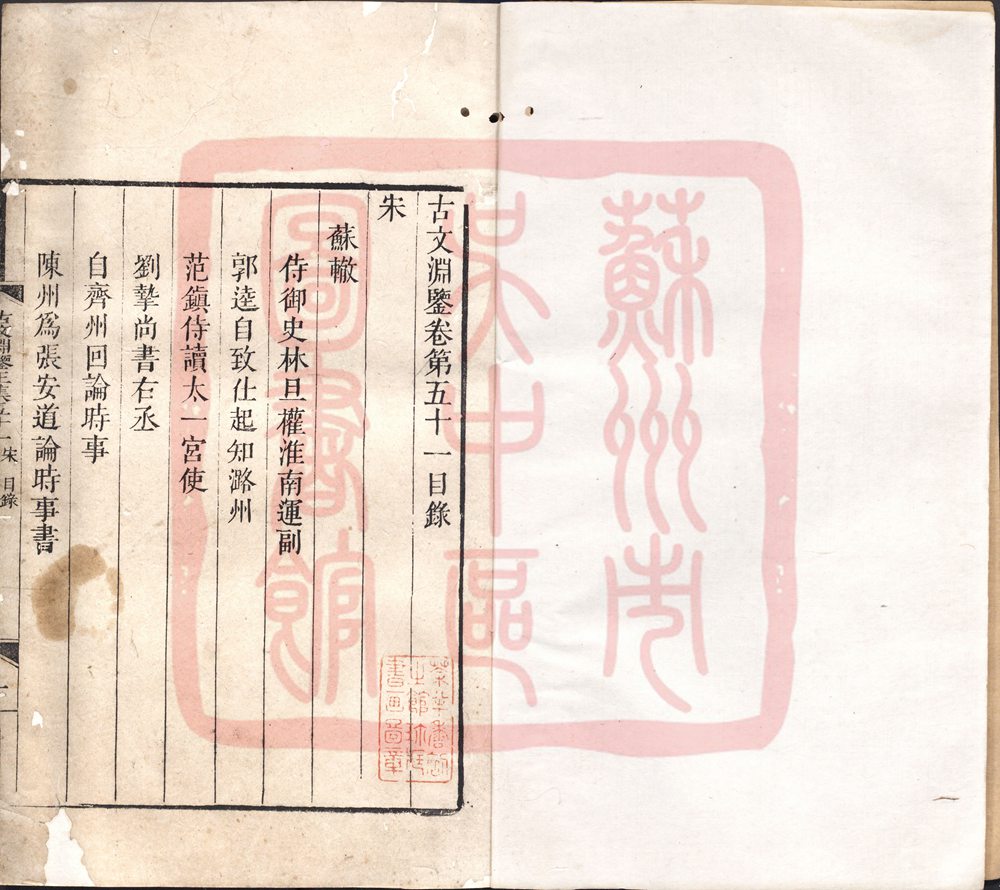 古文淵鑒卷第五十一目錄
宋
蘇轍
侍御史林旦權淮南運副
郭逵自致仕起知潞州
范鎮侍讀太一宮使
劉摯尚書右丞
自齊州回論時事
陳州為張安道論時事書
古文淵鑒正集五十一 宋 目錄 一
蘇州市
吳中區
圖書館
之館珍藏
書画圖章